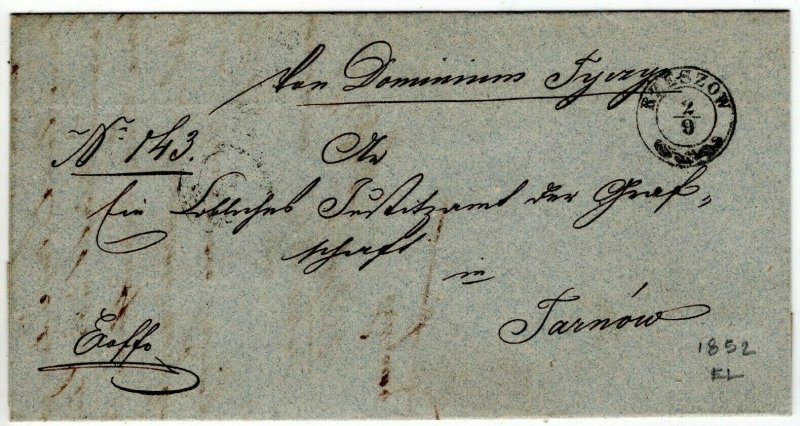 Von Dominium Tyczyn
RZESZOW
2
9
Nr 143.
An
Ein Löbliches Justitzamt der Graf=
schaft
in
Tarnów
Exoffo
1852
EL